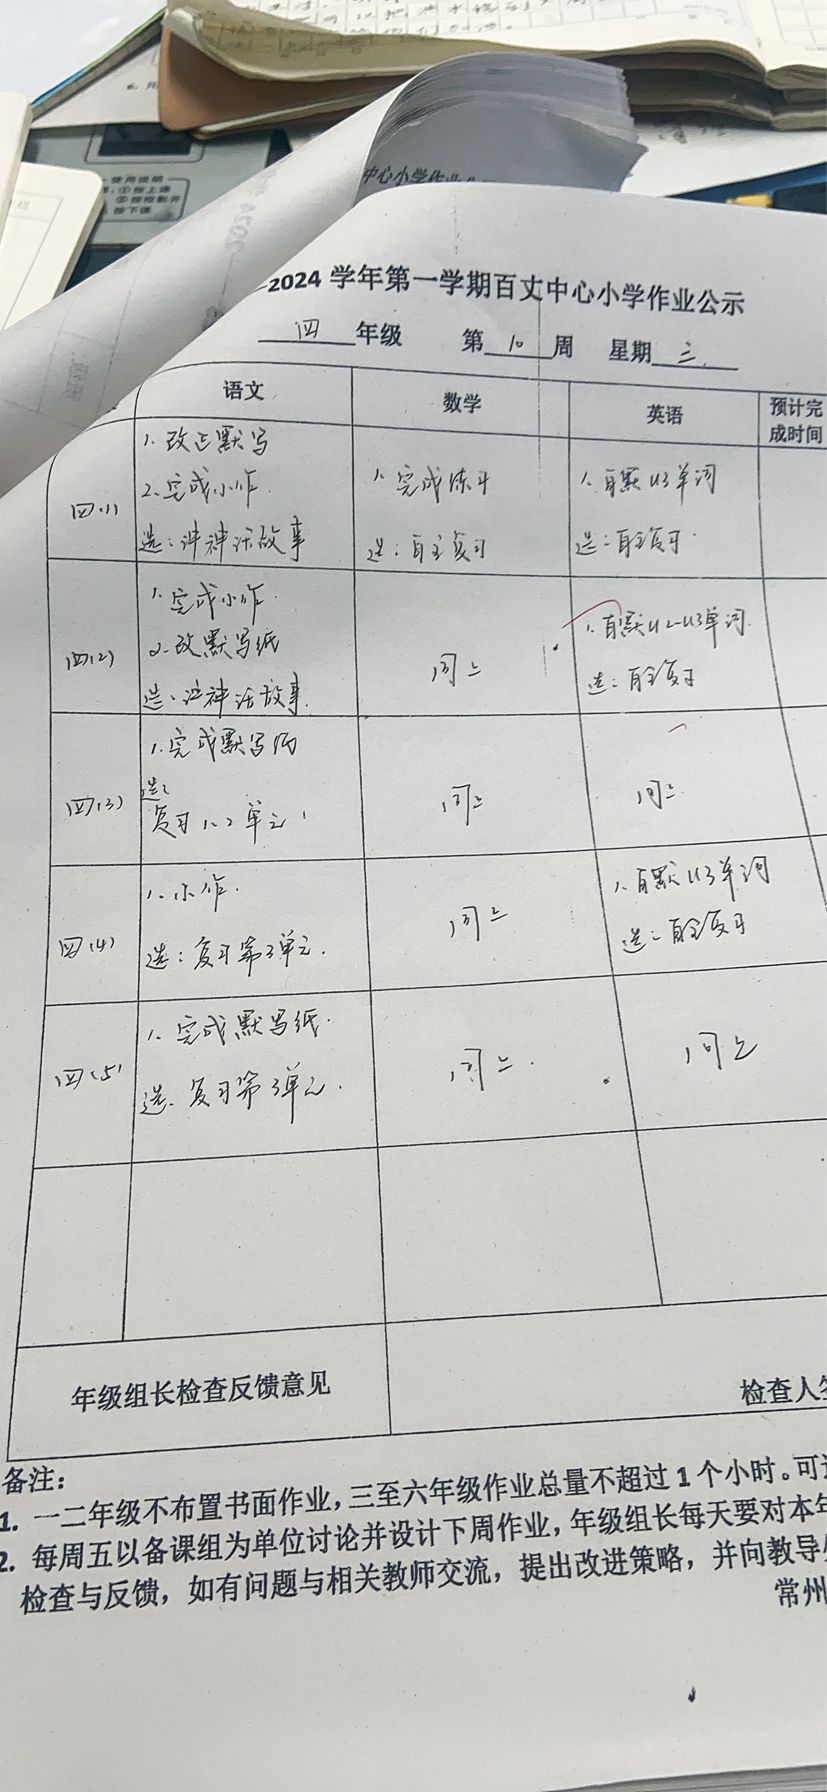 使用说明
中心小学作业
2024 学年第一学期百丈中心小学作业公示
四 年级 第 10 周 星期 三
语文 数学 英语 预计完成时间
四(1)
1. 改正默写
2. 完成小作
选：讲神话故事
1. 完成练习
选：自主复习
1. 自默 U3 单词
选：自主复习
四(2)
1. 完成小作
2. 改默写纸
选：讲神话故事
同上
1. 自默 U2-U3 单词
选：自主复习
四(3)
1. 完成默写纸
选：
复习 1、2 单元
同上
同上
四(4)
1. 小作
选：复习第3单元.
同上
1. 自默 U3 单词
选：自主复习
四(5)
1. 完成默写纸.
选. 复习第3单元.
同上
同上
年级组长检查反馈意见
检查人
备注：
1. 一二年级不布置书面作业，三至六年级作业总量不超过 1 个小时。可
2. 每周五以备课组为单位讨论并设计下周作业，年级组长每天要对本年
检查与反馈，如有问题与相关教师交流，提出改进策略，并向教导
常州